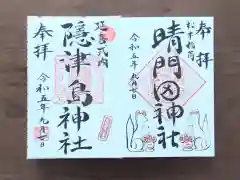 奉拝
松木稲荷
晴門田神社
令和五年九月廿日
延喜式内
隠津島神社
奉拝
令和五年九月廿日